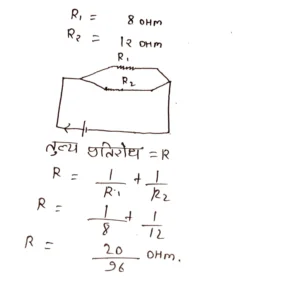 R1 = 8 OHM
R2 = 12 OHM
R1
R2
तुल्य प्रतिरोध = R
R = 1/R1 + 1/R2
R = 1/8 + 1/12
R = 20/96 OHM.